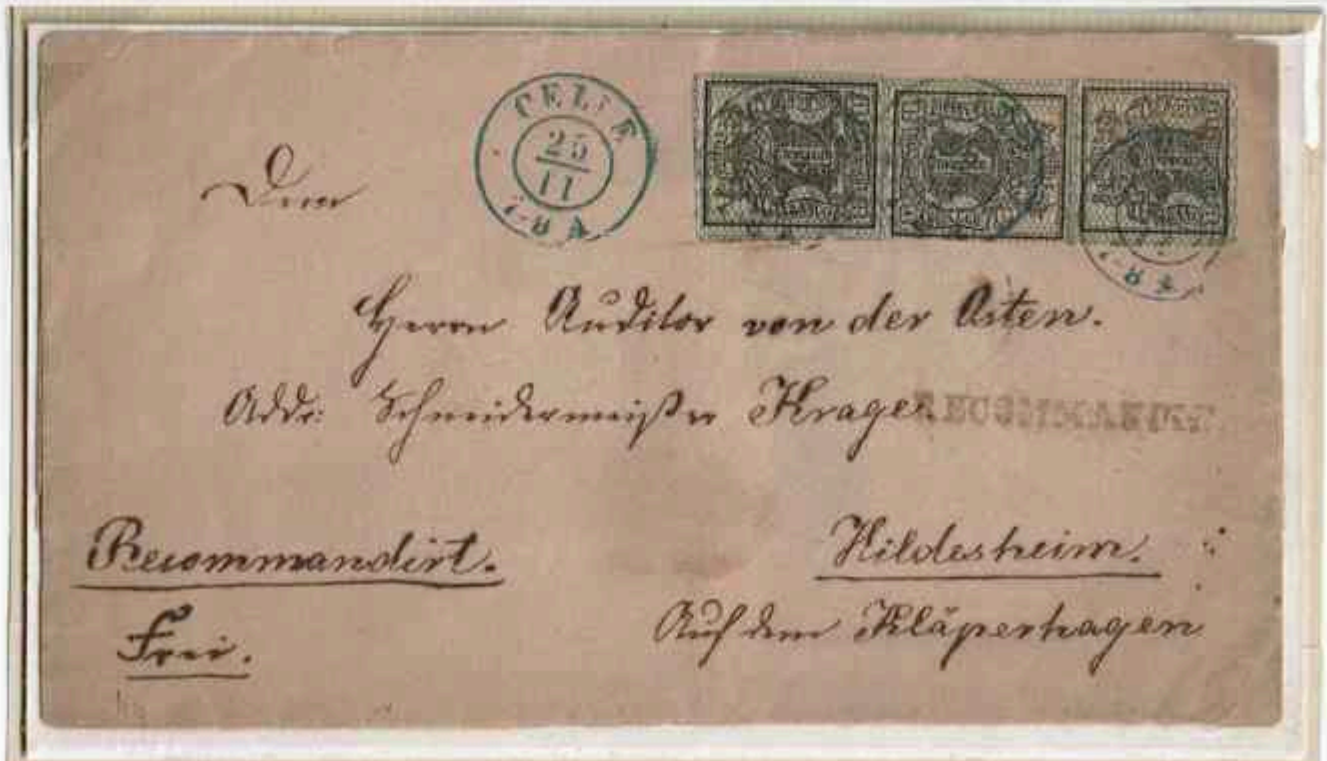 CELLE
25
11
7-8 A
Dem
Herrn Auditor von der Osten.
Addr: Schneidermeister Krager
RECOMMANDIRT
Recommandirt.
Hildesheim.
Frei.
Auf dem Kläperhagen